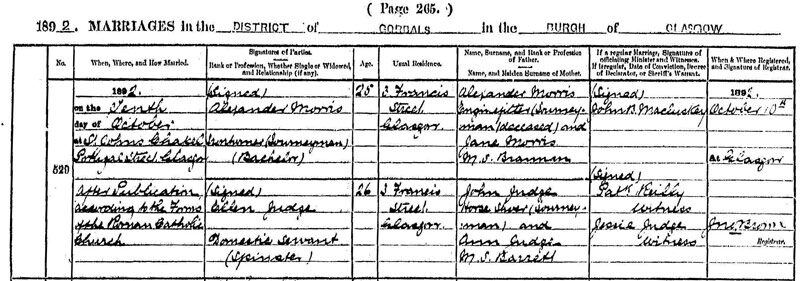 ( Page 265. )
1892. MARRIAGES in the DISTRICT of GORBALS in the BURGH of GLASGOW
No.
When, Where, and How Married.
Signature of Parties.
Rank or Profession, Whether Single or Widowed, and Relationship (if any).
Age.
Usual Residence.
Name, Surname, and Rank or Profession of Father.
Name, and Maiden Surname of Mother.
If a regular Marriage, Signature of officiating Minister and Witnesses.
If irregular, Date of Conviction, Decree of Declarator, or Sheriff's Warrant.
When & Where Registered, and Signature of Registrar.
529
1892.
on the Tenth
day of October
at St. Johns Chapel
Portugal Street, Glasgow
After Publication
according to the Forms
of the Roman Catholic
Church
(Signed)
Alexander Morris
Ironturner (Journeyman)
(Bachelor)
(Signed)
Ellen Judge
Domestic Servant
(Spinster)
25
26
3 Francis
Street
Glasgow
3 Francis
Street
Glasgow
Alexander Morris
Enginefitter (Journey-
man) (deceased) and
Jane Morris
M.S. Brannan
John Judge
Horse Shoer (Journey-
man) and
Ann Judge
M.S. Barrett
(Signed)
John B. Macluskey
(Signed)
Patk Reilly
Witness
Jessie Judge
Witness
1892.
October 10th
At Glasgow
Registrar.